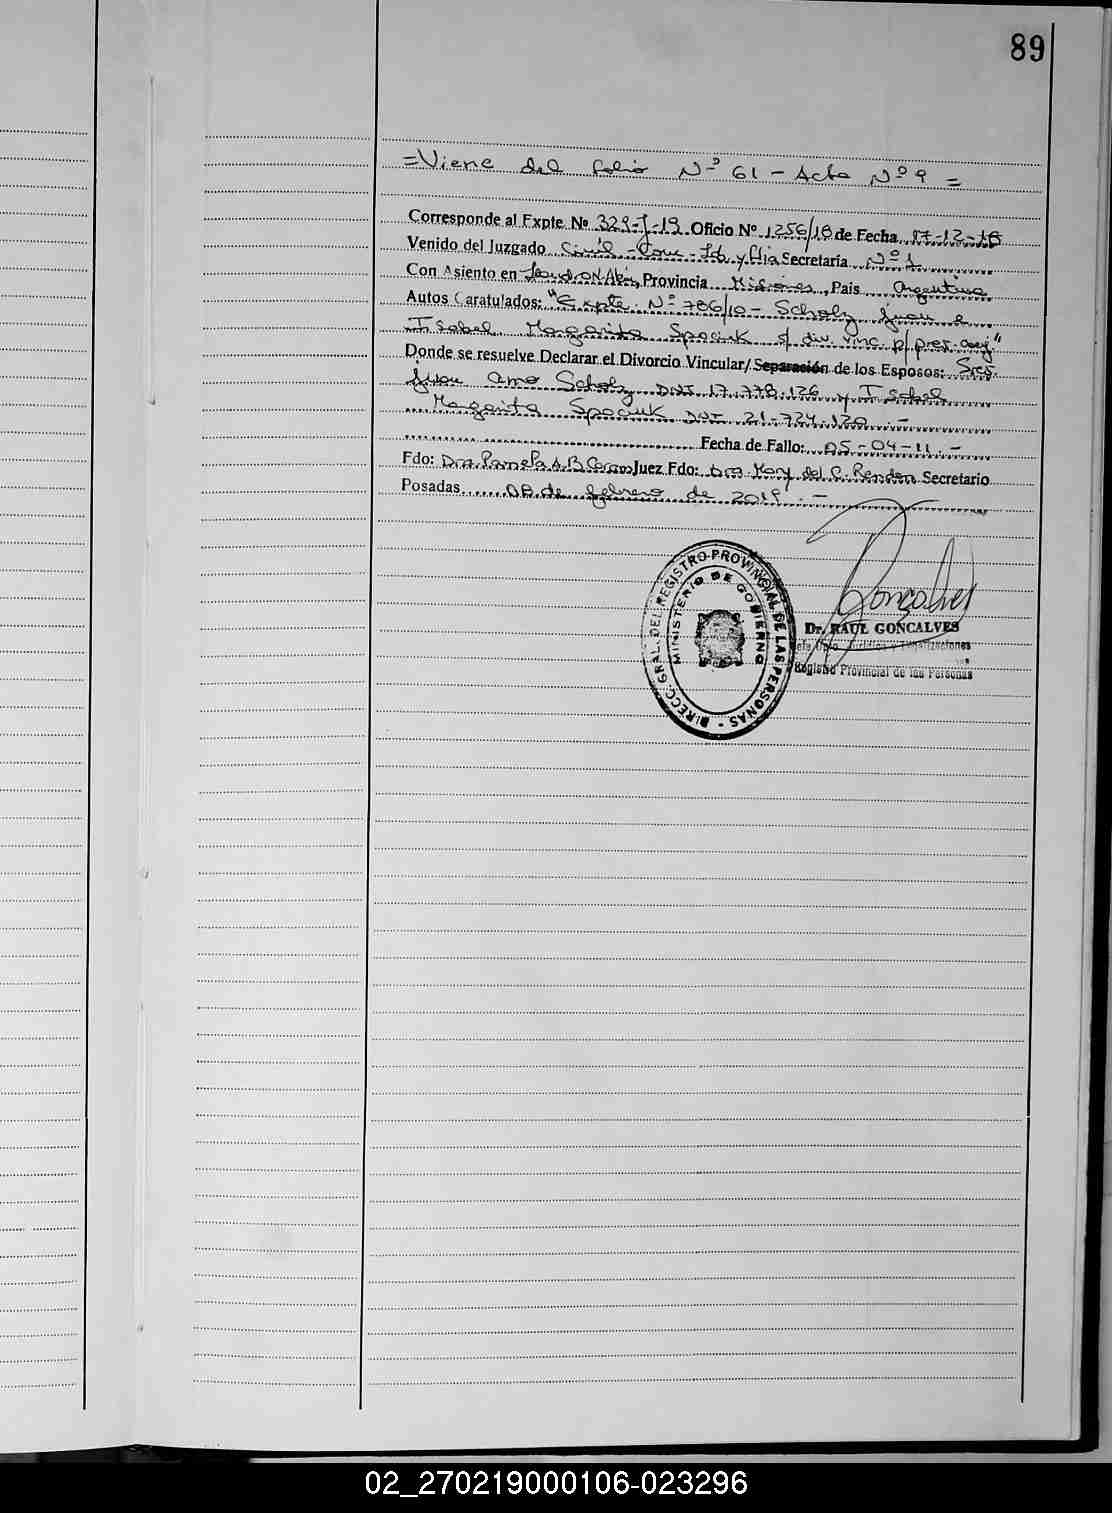 89
=Viene del folio Nº 61 - Acta Nº 9 =
Corresponde al Expte Nº 329-J-19 Oficio Nº 1256/18 de Fecha 17-12-18
Venido del Juzgado Civil - Com - Lab y Flia Secretaría Nº 1
Con Asiento en Leandro N. Alem, Provincia Misiones, País Argentina
Autos Caratulados: "Expte. Nº 786/10 - Scholz Juan e
Isabel Margarita Spaciuk s/ div. vinc p/ pres. conj"
Donde se resuelve Declarar el Divorcio Vincular/Separación de los Esposos: Sres.
Juan Scholz DNI 17.778.126 y Isabel
Margarita Spaciuk DNI 21.724.120 .-
Fecha de Fallo: 05-04-11.-
Fdo: Dra. Pamela A.B. Juez Fdo: Dra. Mary del C. Rendon Secretario
Posadas 08 de febrero de 2019.-
DIRECC. GRAL. DEL REGISTRO PROVINCIAL DE LAS PERSONAS -
MINISTERIO DE GOBIERNO
Goncalves
Dr. RAUL GONCALVES
Jefe Dpto. Jurídica y
Registro Provincial de las Personas
02_270219000106-023296